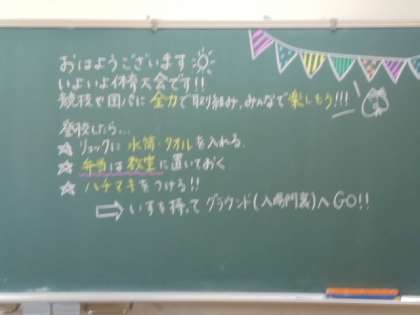 おはようございます
いよいよ体育大会です!!
競技や団パに全力で取り組み、みんなで楽しもう!!!
登校したら…
☆ リュックに 水筒・タオルを入れる
☆ 弁当は教室に置いておく
☆ ハチマキをつける!!
⇨ いすを持って グラウンド(入場門裏)へGO!!